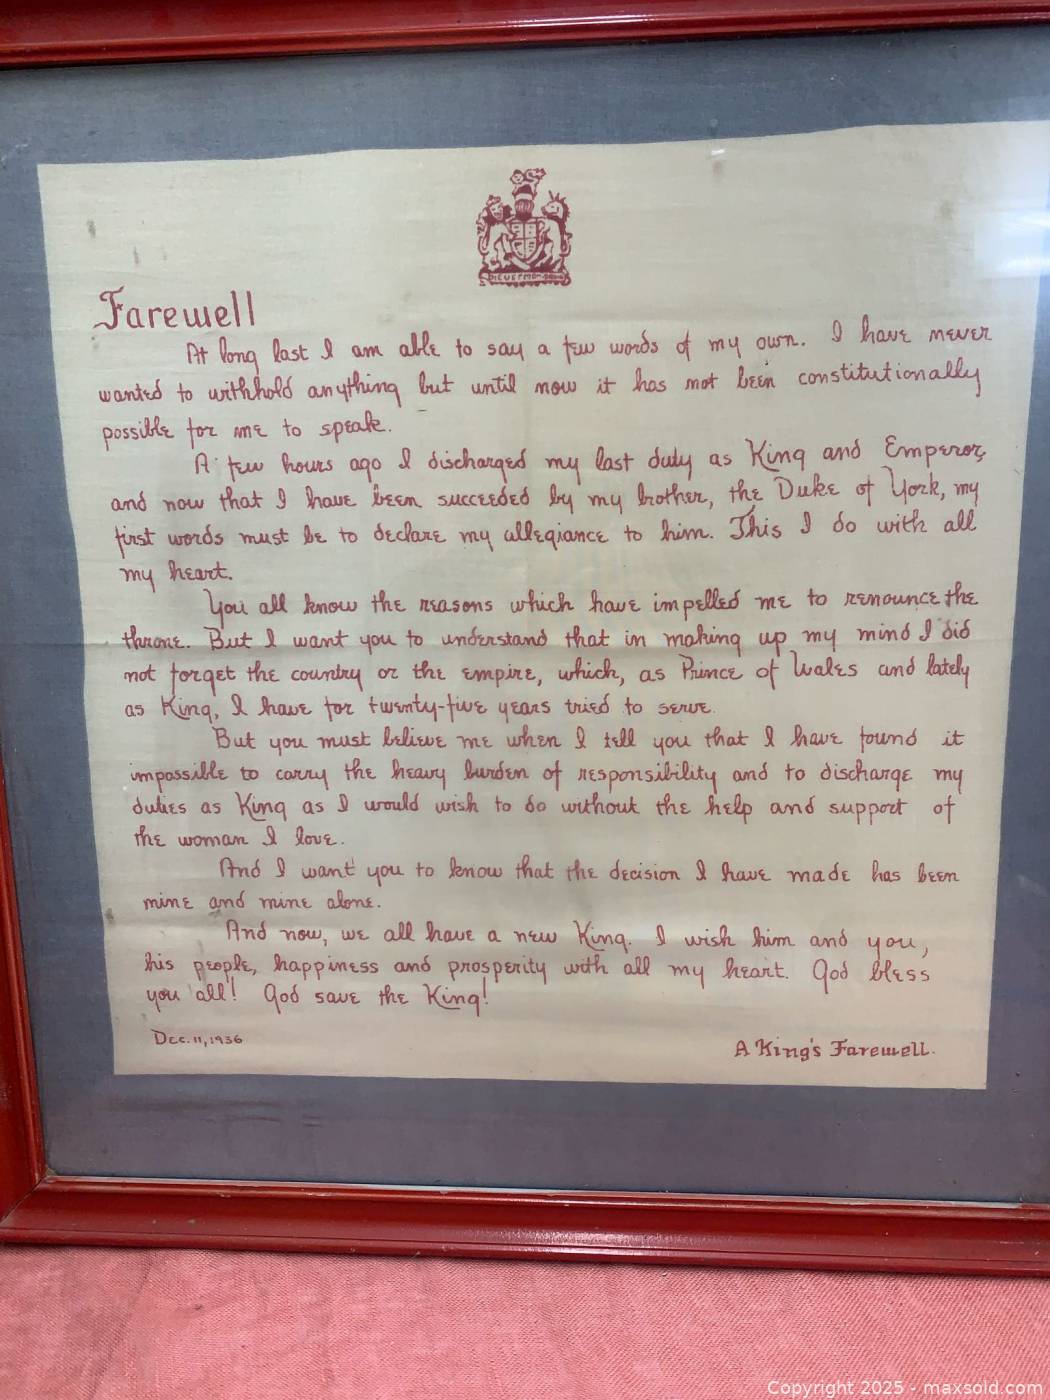 Farewell
At long last I am able to say a few words of my own. I have never
wanted to withhold anything but until now it has not been constitutionally
possible for me to speak.
A few hours ago I discharged my last duty as King and Emperor,
and now that I have been succeeded by my brother, the Duke of York, my
first words must be to declare my allegiance to him. This I do with all
my heart.
You all know the reasons which have impelled me to renounce the
throne. But I want you to understand that in making up my mind I did
not forget the country or the empire, which, as Prince of Wales and lately
as King, I have for twenty-five years tried to serve.
But you must believe me when I tell you that I have found it
impossible to carry the heavy burden of responsibility and to discharge my
duties as King as I would wish to do without the help and support of
the woman I love.
And I want you to know that the decision I have made has been
mine and mine alone.
And now, we all have a new King. I wish him and you,
his people, happiness and prosperity with all my heart. God bless
you all! God save the King!
Dec. 11, 1936
A King's Farewell.
Copyright 2025 - maxsold.com